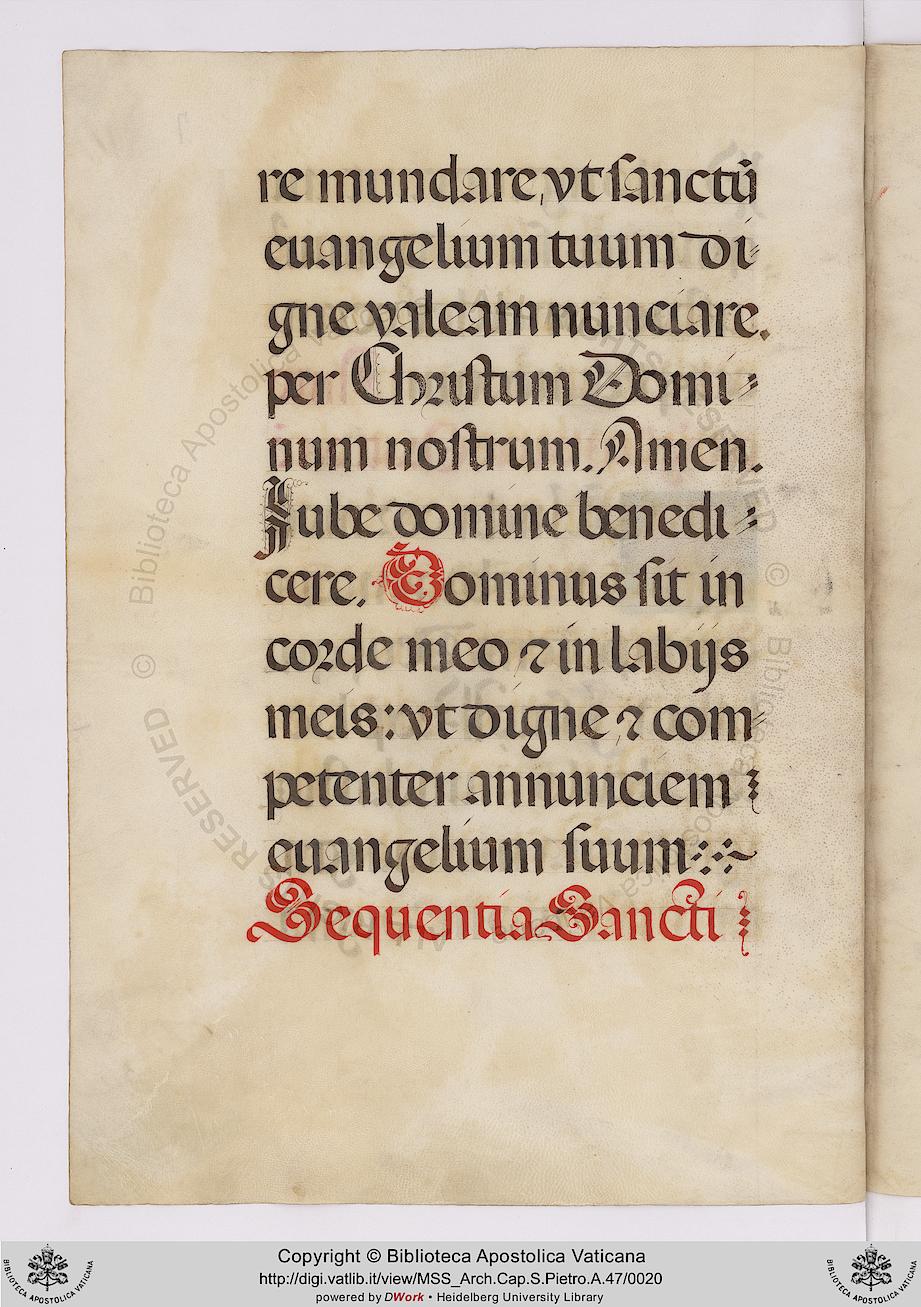 re mundare, vt sanctū
euangelium tuum di⸗
gne valeam nunciare.
per Christum Domi⸗
num nostrum. Amen.
Iube domine benedi⸗
cere. Dominus sit in
corde meo ⁊ in labijs
meis: vt digne ⁊ com⸗
petenter annunciem
euangelium suum
Sequentia Sancti
© Biblioteca Apostolica Vaticana
RESERVED
Copyright © Biblioteca Apostolica Vaticana
http://digi.vatlib.it/view/MSS_Arch.Cap.S.Pietro.A.47/0020
powered by DWork • Heidelberg University Library
BIBLIOTECA APOSTOLICA VATICANA
BIBLIOTECA APOSTOLICA VATICANA